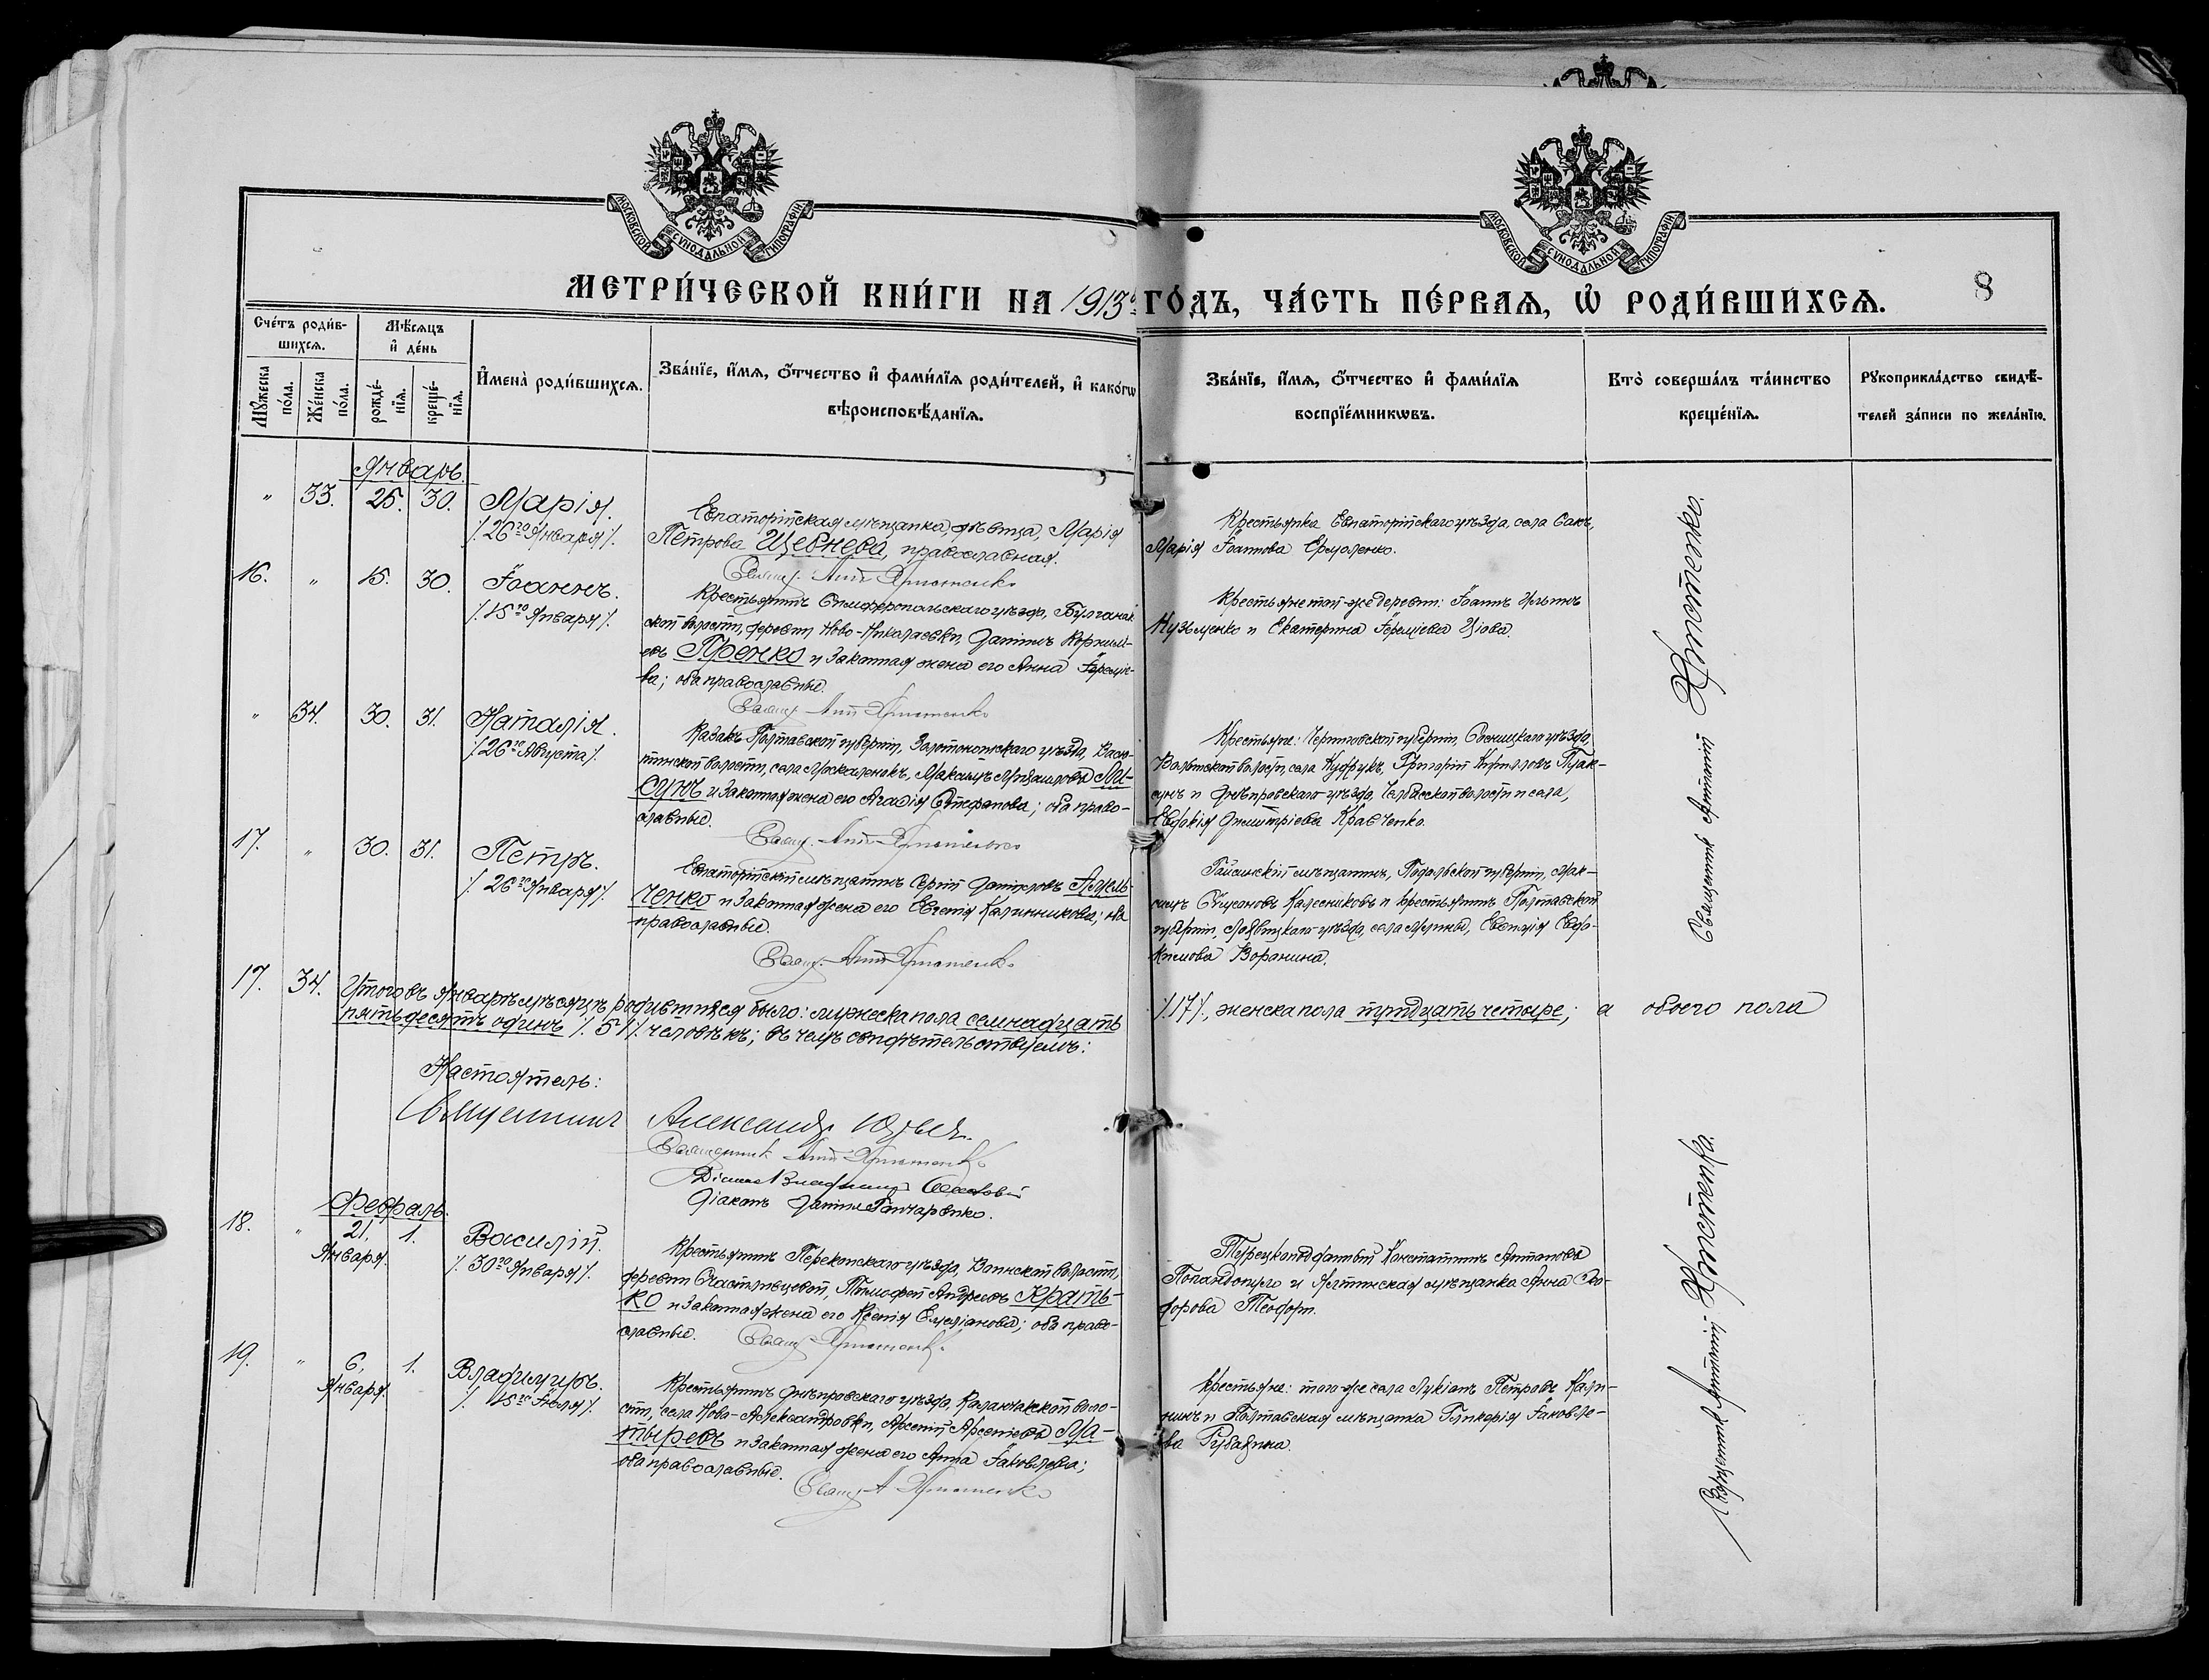 МОСКОВСКОЙ СУНОДАЛЬНОЙ ТИПОГРАФІИ
МОСКОВСКОЙ СУНОДАЛЬНОЙ ТИПОГРАФІИ
8
МЕТРИ́ЧЕСКОЙ КНИ́ГИ НА 1913й ГО́ДЪ, ЧА́СТЬ ПЕ́РВАѦ, Ѡ҆ РОДИ́ВШИХСѦ.
Сче́тъ роди́в-
шихсѧ.
Мѣ́сѧцъ
и҆ де́нь
Мꙋ́жеска
по́ла.
Же́нска
по́ла.
рожде́-
нїѧ.
креще́-
нїѧ.
И҆мена̀ роди́вшихсѧ.
Зва́нїе, и҆́мѧ, ѻ҆́тчество и҆ фами́лїѧ роди́телей, и҆ како́гѡ
вѣроисповѣ́данїѧ.
Зва́нїе, и҆́мѧ, ѻ҆́тчество и҆ фами́лїѧ
воспрїе́мникѡвъ.
Кто̀ соверша́лъ та́инство
креще́нїѧ.
Рꙋкоприкла́дство свидѣ́-
телей за́писи по жела́нїю.
Январь.
" 33. 25. 30. Марія.
/. 26го Января /.
Евпаторійская мѣщанка, дѣвица, Марія
Петрова Щебнева, православная.
Свящ. Ант Христенко
Крестьянка Евпаторійскаго уѣзда, села Сакъ,
Марія Іоаннова Ермоленко.
16. " 15. 30. Іоаннъ.
/. 15го Января /.
Крестьянинъ Симферопольскаго уѣзда, Булганак-
ской волости, деревни Ново-Николаевки, Даніилъ Корнилі-
евъ Яренко и законная жена его Анна Іереміе-
ва; оба православные.
Свящ. Ант Христенко
Крестьяне той-же деревни: Іоаннъ Ильинъ
Кузьменко и Екатерина Іереміева
" 34. 30. 31. Наталія.
/. 26го Августа /.
Казакъ Полтавской губерніи, Золотоношскаго уѣзда,
тинской волости, села Москаленокъ, Максимъ Михаиловъ Ми-
сунъ и законная жена его Агафія Стефанова; оба право-
славные.
Свящ. Ант Христенко
Крестьяне: Черниговской губерніи, Сосницкаго уѣзда,
волости, села Григорій Кирилловъ
сунъ и Днѣпровскаго уѣзда, Чалбасской волости и села,
Евдокія Димитріева Кравченко.
17. " 30. 31. Петръ.
/. 26го Января /.
Евпаторійскій мѣщанинъ Сергій Даніиловъ Амель-
ченко и законная жена его Евгенія Калинникова; оба
православные.
Свящ. Ант Христенко
Гайсинскій мѣщанинъ, Подольской губерніи, Мак-
симъ Симеоновъ Калесниковъ и крестьянинъ Полтавской
губерніи, Лохвицкаго уѣзда, села Евгенія Евдо-
кимова Воранина.
17. 34. Итого въ Январѣ мѣсяцѣ родившихся было: мужеска пола семнадцать /.17/., женска пола тридцать четыре; а обоего пола
пятьдесятъ одинъ /. 51 /. человѣкъ; въ чемъ свидѣтельствуемъ:
Настоятель:
Священникъ Александръ
Священникъ Ант Христенко
Діаконъ Владимир
Діаконъ Даніилъ Ганчаренко.
Священникъ Антоній Христенко.
Февраль.
18. " 21. Января. 1. Василій.
/. 30го Января /.
Крестьянинъ Перекопскаго уѣзда, Воинской волости,
деревни Счастливцевой, Тимофей Андреевъ Крать-
ко и законная жена его Ксенія Емеліанова; оба право-
славные.
Свящ. Христенко
Турецкоподданный Константинъ Антоновъ
Попандопуло и Ялтинская мѣщанка Анна Ѳео-
дорова Теодори.
19. " 6. Января. 1. Владиміръ.
/. 15го Іюля /.
Крестьянинъ Днѣпровскаго уѣзда, Каланчакской воло-
сти, села Ново-Александровки, Арсеній Арсеніевъ Ма-
тыревъ и законная жена его Анна Іаковлева;
оба православные.
Свящ А Христенко
Крестьяне: того-же села Лукіанъ Петровъ Кали-
нинъ и Полтавская мѣщанка Гликерія Іаковле-
ва
Священникъ Антоній Христенко.